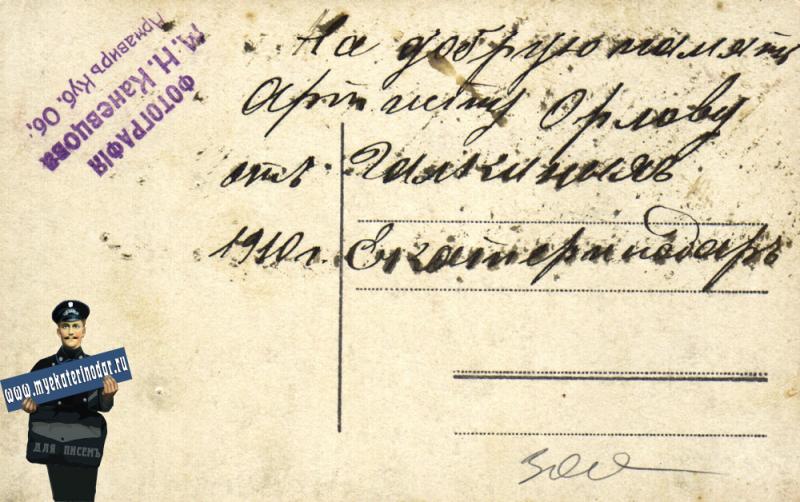 На добрую память
Артисту Орлову
отъ Галкиныхъ
1910 г. Екатеринодаръ
ФОТОГРАФІЯ
М. Н. Каневцова
Армавиръ Куб. Об.
www.myekaterinodar.ru
ДЛЯ ПИСЕМЪ